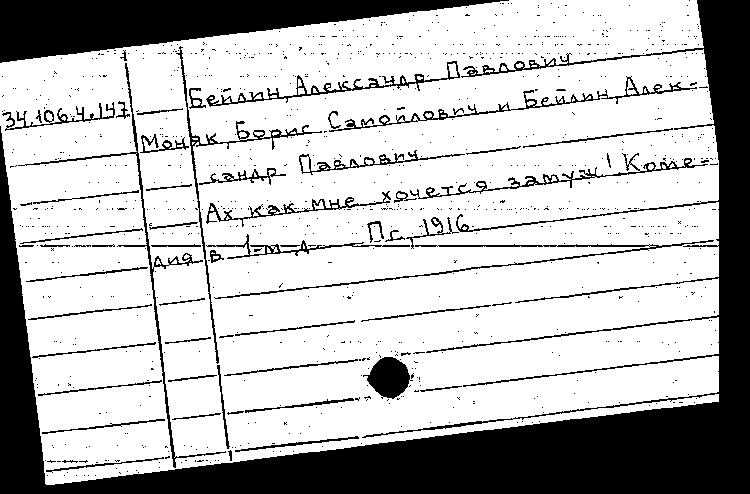 Бейлин, Александр Павлович
34.106.4.147
Моняк, Борис Самойлович и Бейлин, Алек-
сандр Павлович
Ах, как мне хочется замуж! Коме-
дия в 1-м д. Пг., 1916